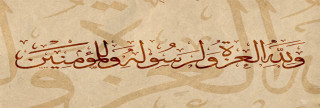 ولله العزة ولرسوله وللمؤمنين